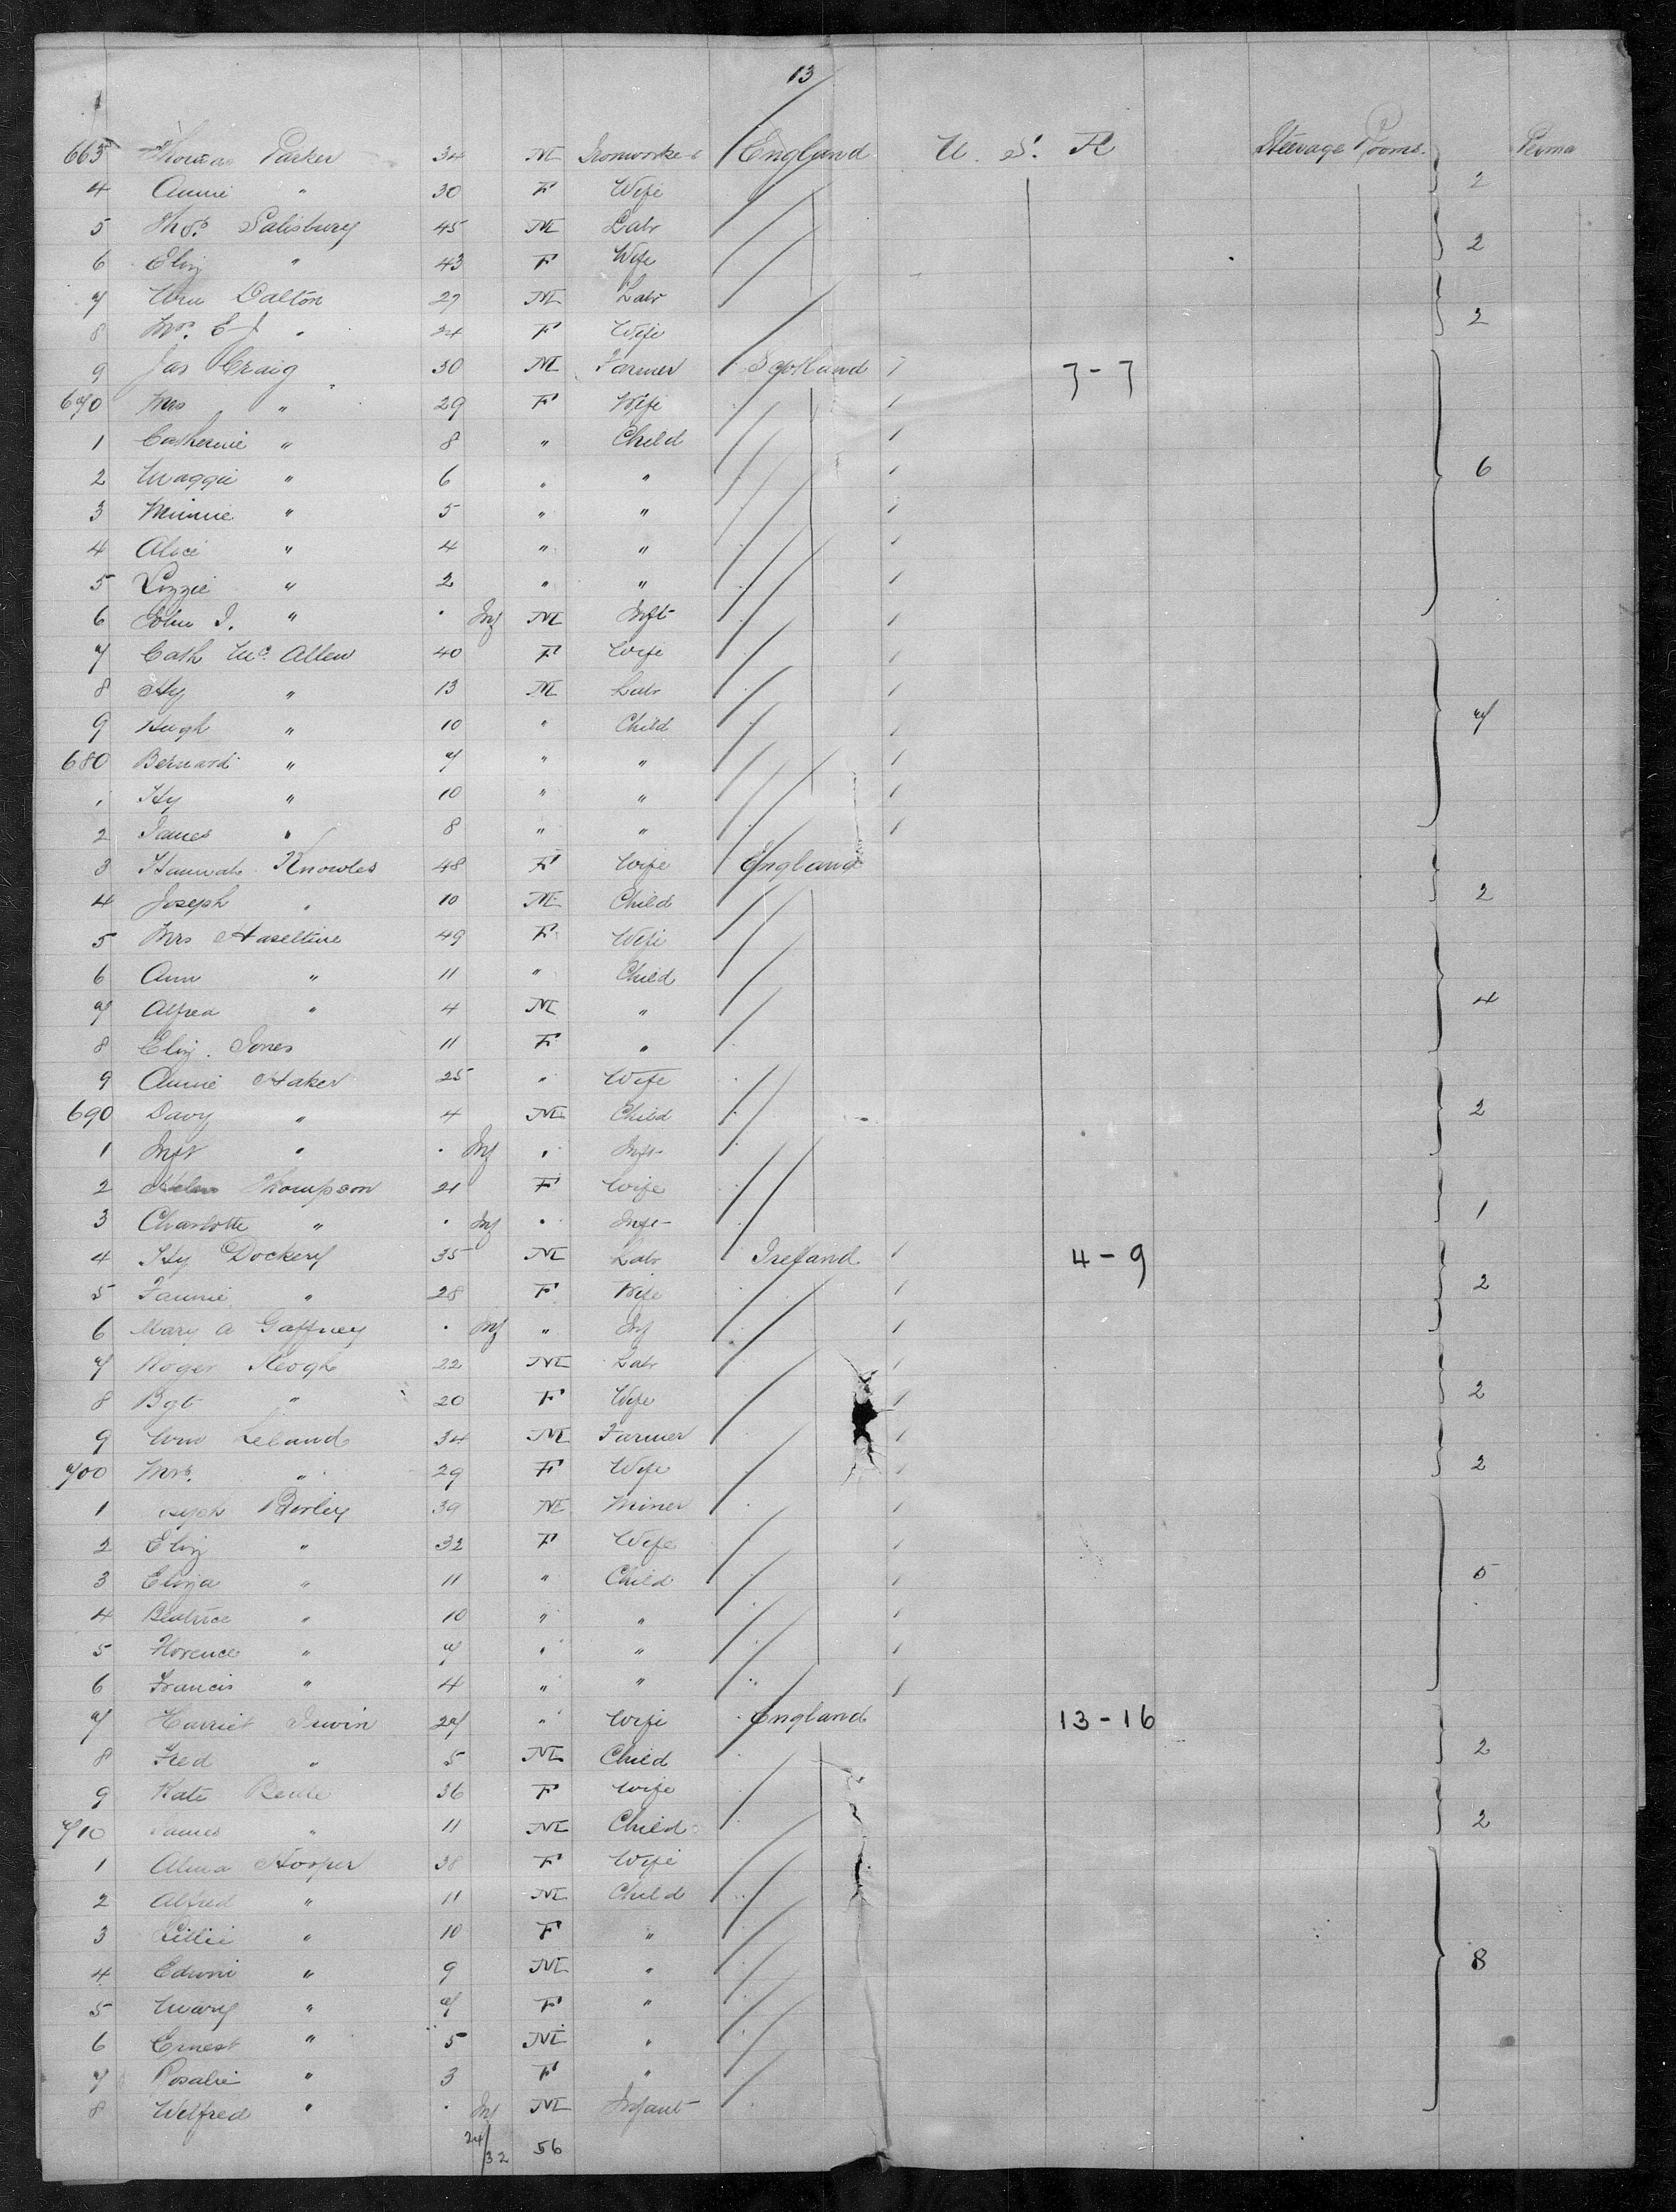 13
663 Thomas Parker 34 M Ironworker England U. S. A Steerage Rooms. 2
4 Annie " 30 F Wife
5 Thos. Salisbury 45 M Labr 2
6 Eliz " 43 F Wife
7 Wm Dalton 27 M Labr 2
8 Mrs. E J " 24 F Wife
9 Jas Craig 30 M Farmer Scotland 7-7
670 Mrs " 29 F Wife
1 Catherine " 8 " Child
2 Maggie " 6 " " 6
3 Minnie " 5 " "
4 Alice " 4 " "
5 Lizzie " 2 " "
6 John J. " Inf M Inft
7 Cath Mc Allen 40 F Wife
8 Hy " 13 M Labr
9 Hugh " 10 " Child 7
680 Bernard " 7 " "
1 Hy " 10 " "
2 James " 8 " "
3 Hannah Knowles 48 F Wife England 2
4 Joseph " 10 M Child
5 Mrs Haseltine 49 F Wife
6 Ann " 11 " Child 4
7 Alfred " 4 M "
8 Eliz. Jones 11 F "
9 Annie Haker 25 " Wife
690 Davy " 4 M Child 2
1 Inft " Inf " Inft
2 Thompson 21 F Wife 1
3 Charlotte " Inf " Inft
4 Hy Dockery 35 M Labr Ireland 4-9 2
5 Fannie " 28 F Wife
6 Mary A Gaffney Inf " Inf
7 Roger Keogh 22 M Labr 2
8 Bgt " 20 F Wife
9 Wm Leland 34 M Farmer 2
700 Mrs. " 29 F Wife
1 39 M Miner
2 Eliz " 32 F Wife
3 Eliza " 11 " Child 5
4 Beatrice " 10 " "
5 Florence " 7 " "
6 Francis " 4 " "
7 Harriet Irwin 27 " Wife England 13-16 2
8 Fred " 5 M Child
9 Kate 36 F Wife 2
710 James " 11 M Child
1 Alma Hooper 38 F Wife
2 Alfred " 11 M Child
3 Lillie " 10 F "
4 Edwin " 9 M " 8
5 Mary " 7 F "
6 Ernest " 5 M "
7 Rosalie " 3 F "
8 Wilfred " Inf M Infant
24/32 56